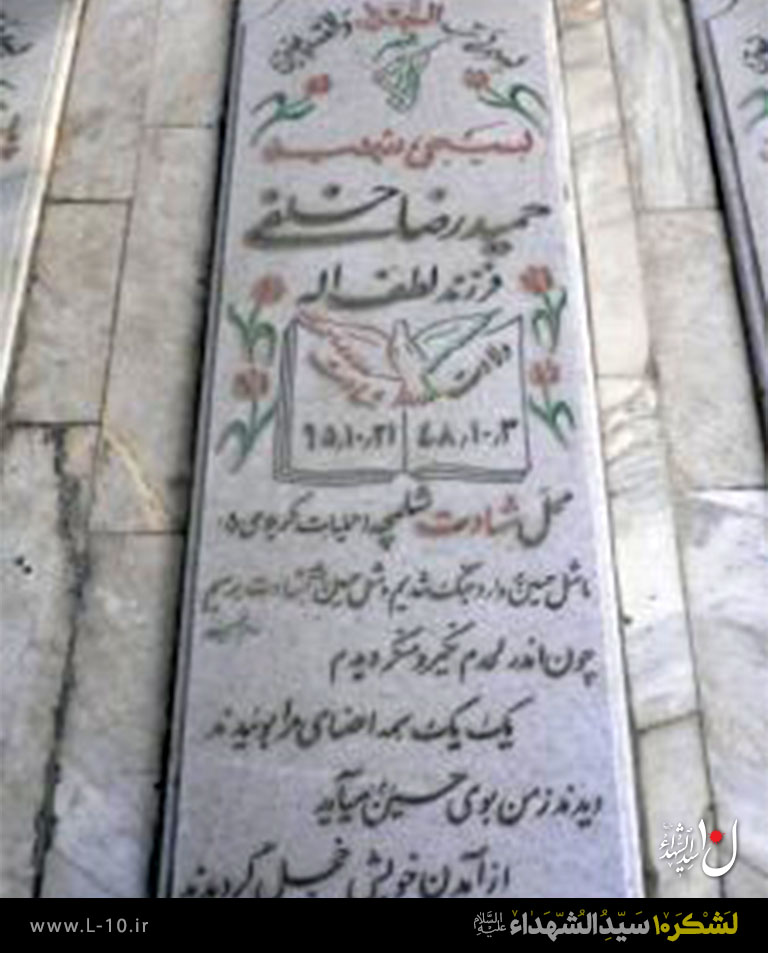 بسیجی شهید
حمیدرضا خلفی
فرزند لطف اله
ولادت شهادت
۴۸٫۱۰٫۳ ۶۵٫۱۰٫۲۱
محل شهادت شلمچه عملیات کربلای ۵
ما مثل حسین وارد جنگ شدیم و مثل حسین به شهادت برسیم
چون اندر لحدم نکیر و منکر دیدم
یک یک همه اعضای مرا بوئیدند
دیدند ز من بوی حسین میآید
از آمدن خویش خجل گردیدند
لشکر۱۰ سیّدالشّهداء علیه السّلام
www.L-10.ir